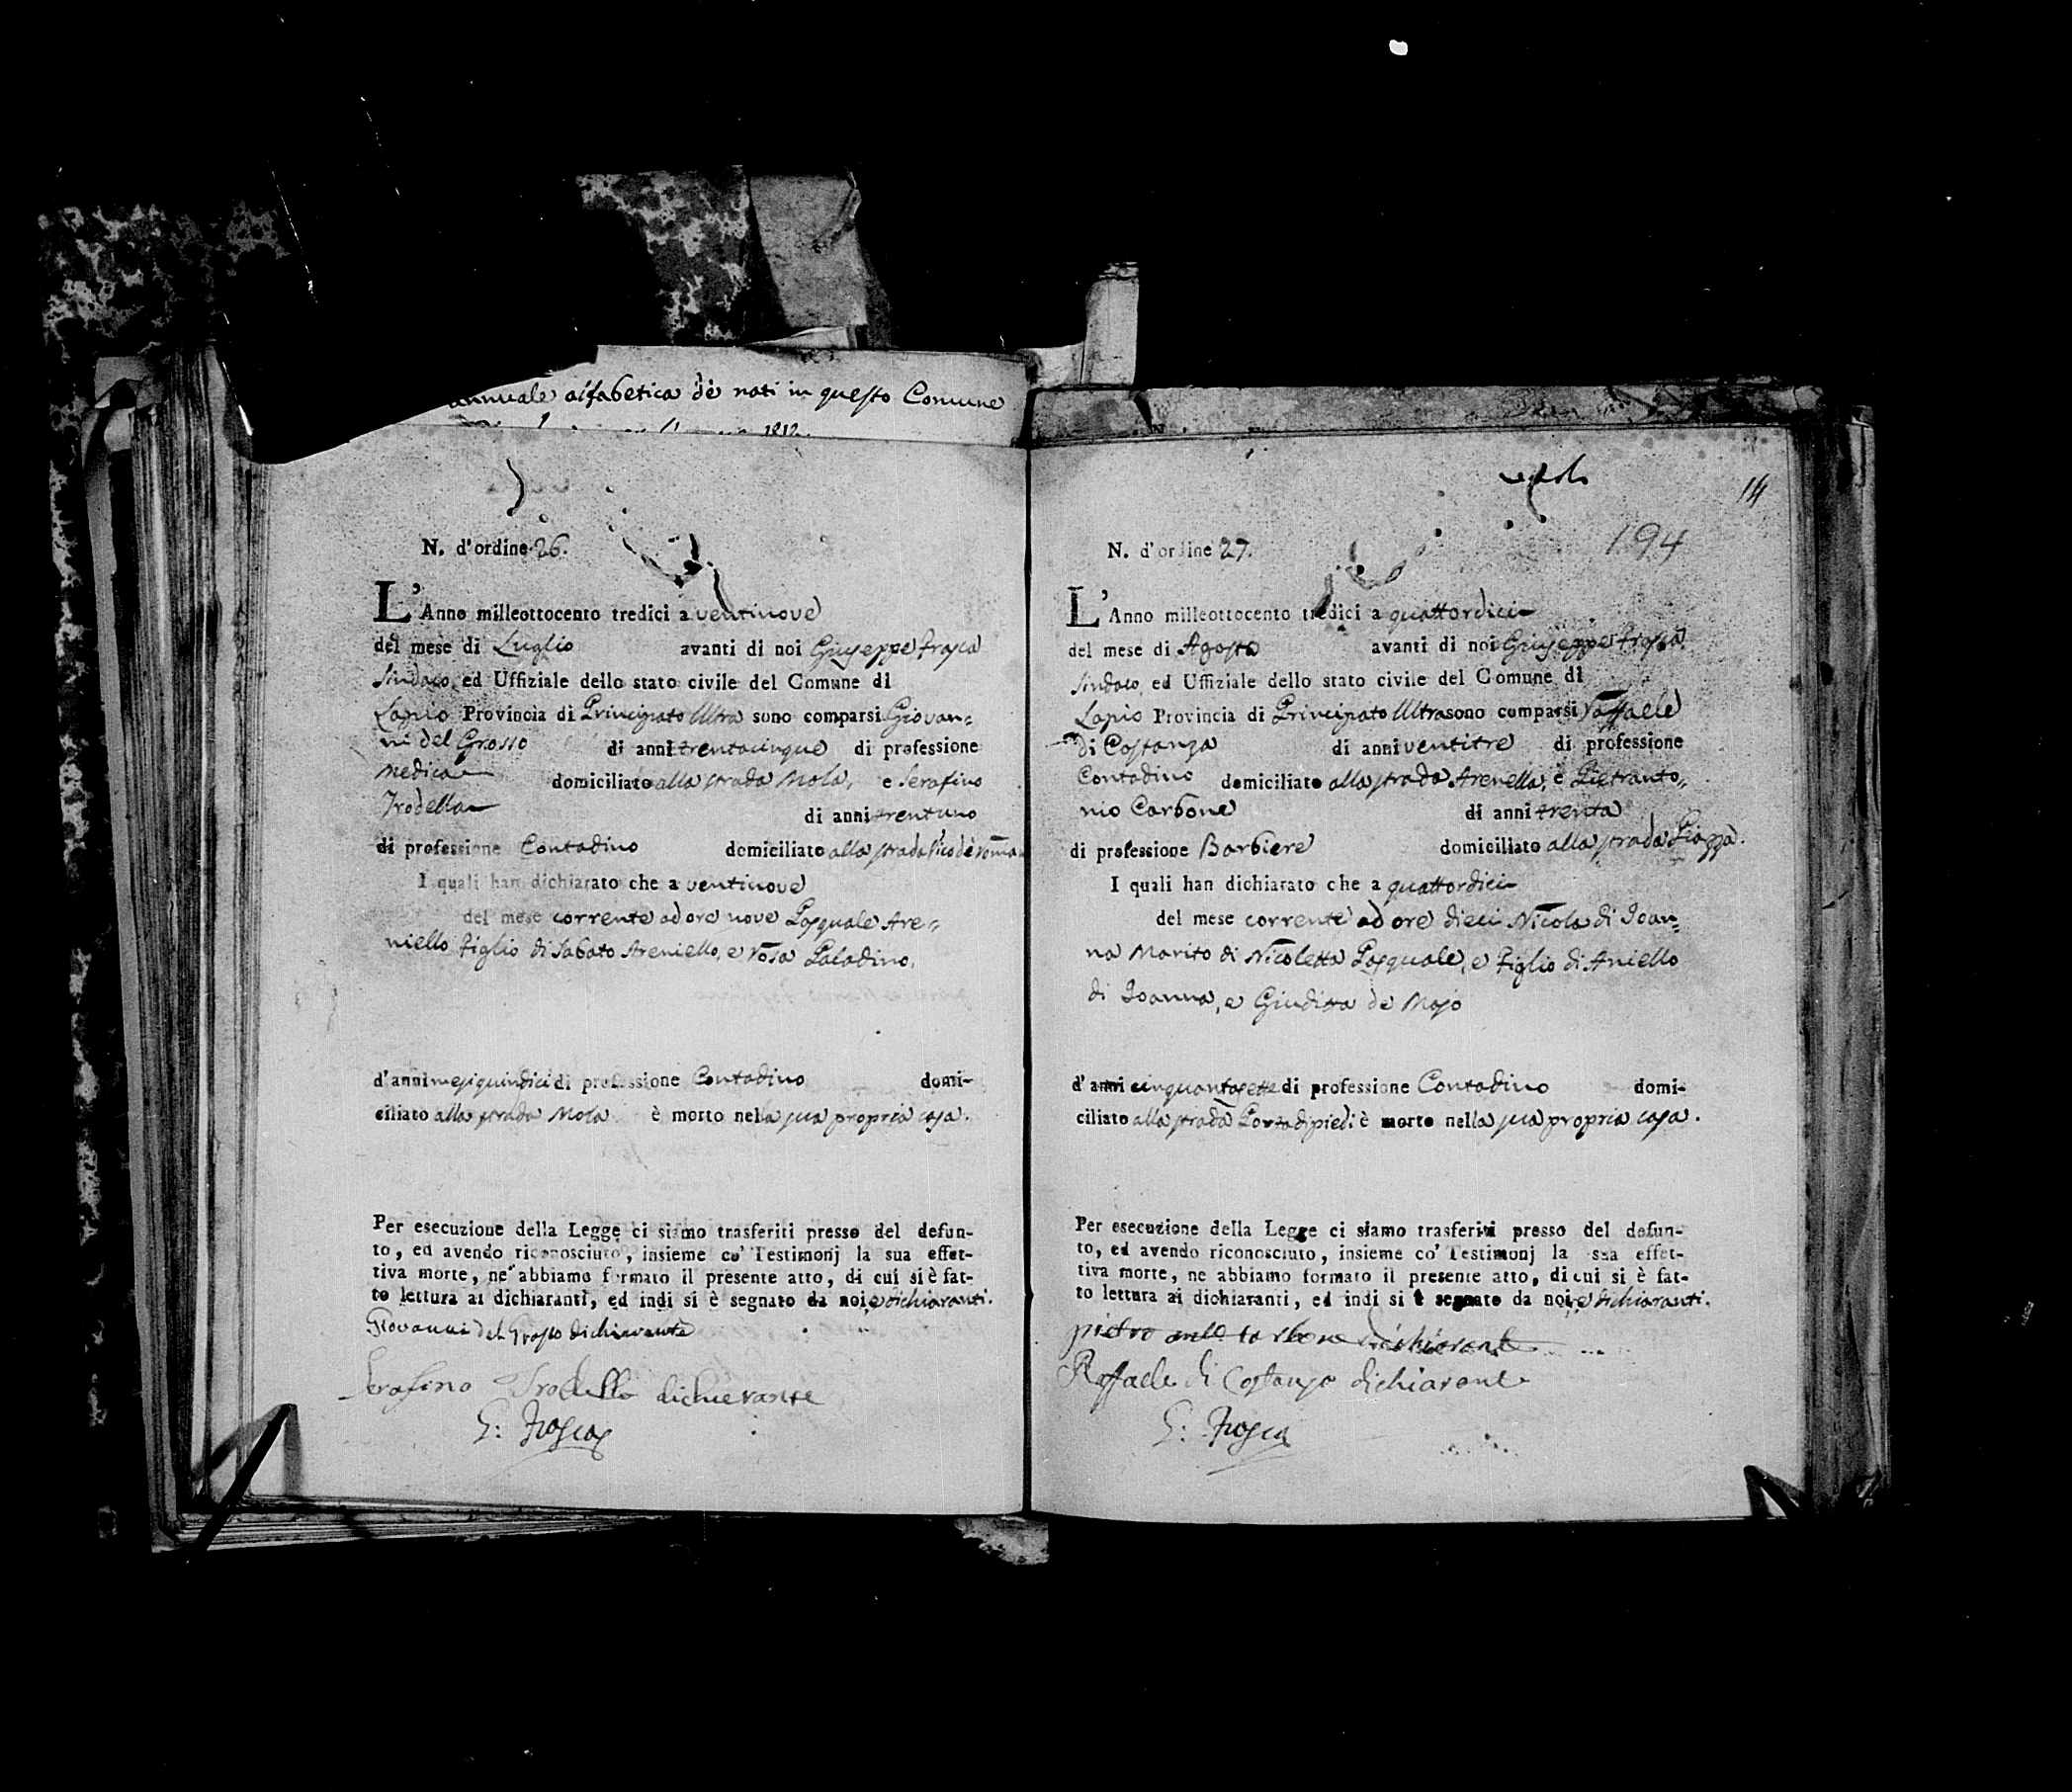 annuale alfabetica dè nati in questo Comune
1812.
N. d'ordine 26.
L'Anno milleottocento tredici a ventinove
del mese di Luglio avanti di noi Giuseppe Frasca
Sindaco, ed Uffiziale dello stato civile del Comune di
Lapio Provincia di Principato Ultra sono comparsi Giovan=
ni del Grosso di anni trentacinque di professione
Medica domiciliato alla strada Mola, e Serafino
Trodella di anni trentuno
di professione Contadino domiciliato alla strada Vico dè
I quali han dichiarato che a ventinove
del mese corrente ad ore nove Pasquale Are=
niello Figlio di Sabato Areniello, e Rosa Paladino,
d'anni mesi quindici di professione Contadino domi-
ciliato alla strada Mola è morto nella sua propria casa.
Per esecuzione della Legge ci siamo trasferiti presso del defun-
to, ed avendo riconosciuto, insieme co' Testimonj la sua effet-
tiva morte, ne abbiamo formato il presente atto, di cui si è fat-
to lettura ai dichiaranti, ed indi si è segnato da noi, e dichiaranti.
Giovanni del Grosso dichiarante
Serafino Trodella dichierante
G: Frasca
14
194
N. d'ordine 27.
L'Anno milleottocento tredici a quattordici
del mese di Agosto avanti di noi Giuseppe Frasca
Sindaco, ed Uffiziale dello stato civile del Comune di
Lapio Provincia di Principato Ultra sono comparsi Raffaele
di Costanza di anni ventitre di professione
Contadino domiciliato alla strada Arenella, e Pietranto=
nio Carbone di anni trenta
di professione Barbiere domiciliato alla strada Piazza.
I quali han dichiarato che a quattordici
del mese corrente ad ore dieci Nicola di Ioan=
na Marito di Nicoletta Pasquale, e Figlio di Aniello
di Ioanna, e Giuditta de Majo
d'anni cinquantasette di professione Contadino domi-
ciliato alla strada Portadipiedi è morto nella sua propria casa.
Per esecuzione della Legge ci siamo trasferiti presso del defun-
to, ed avendo riconosciuto, insieme co' Testimonj la sua effet-
tiva morte, ne abbiamo formato il presente atto, di cui si è fat-
to lettura ai dichiaranti, ed indi si è segnato da noi, e dichiaranti.
pietro carbone dichiarante
Raffaele di Costanzo dichiarante
G: Frasca